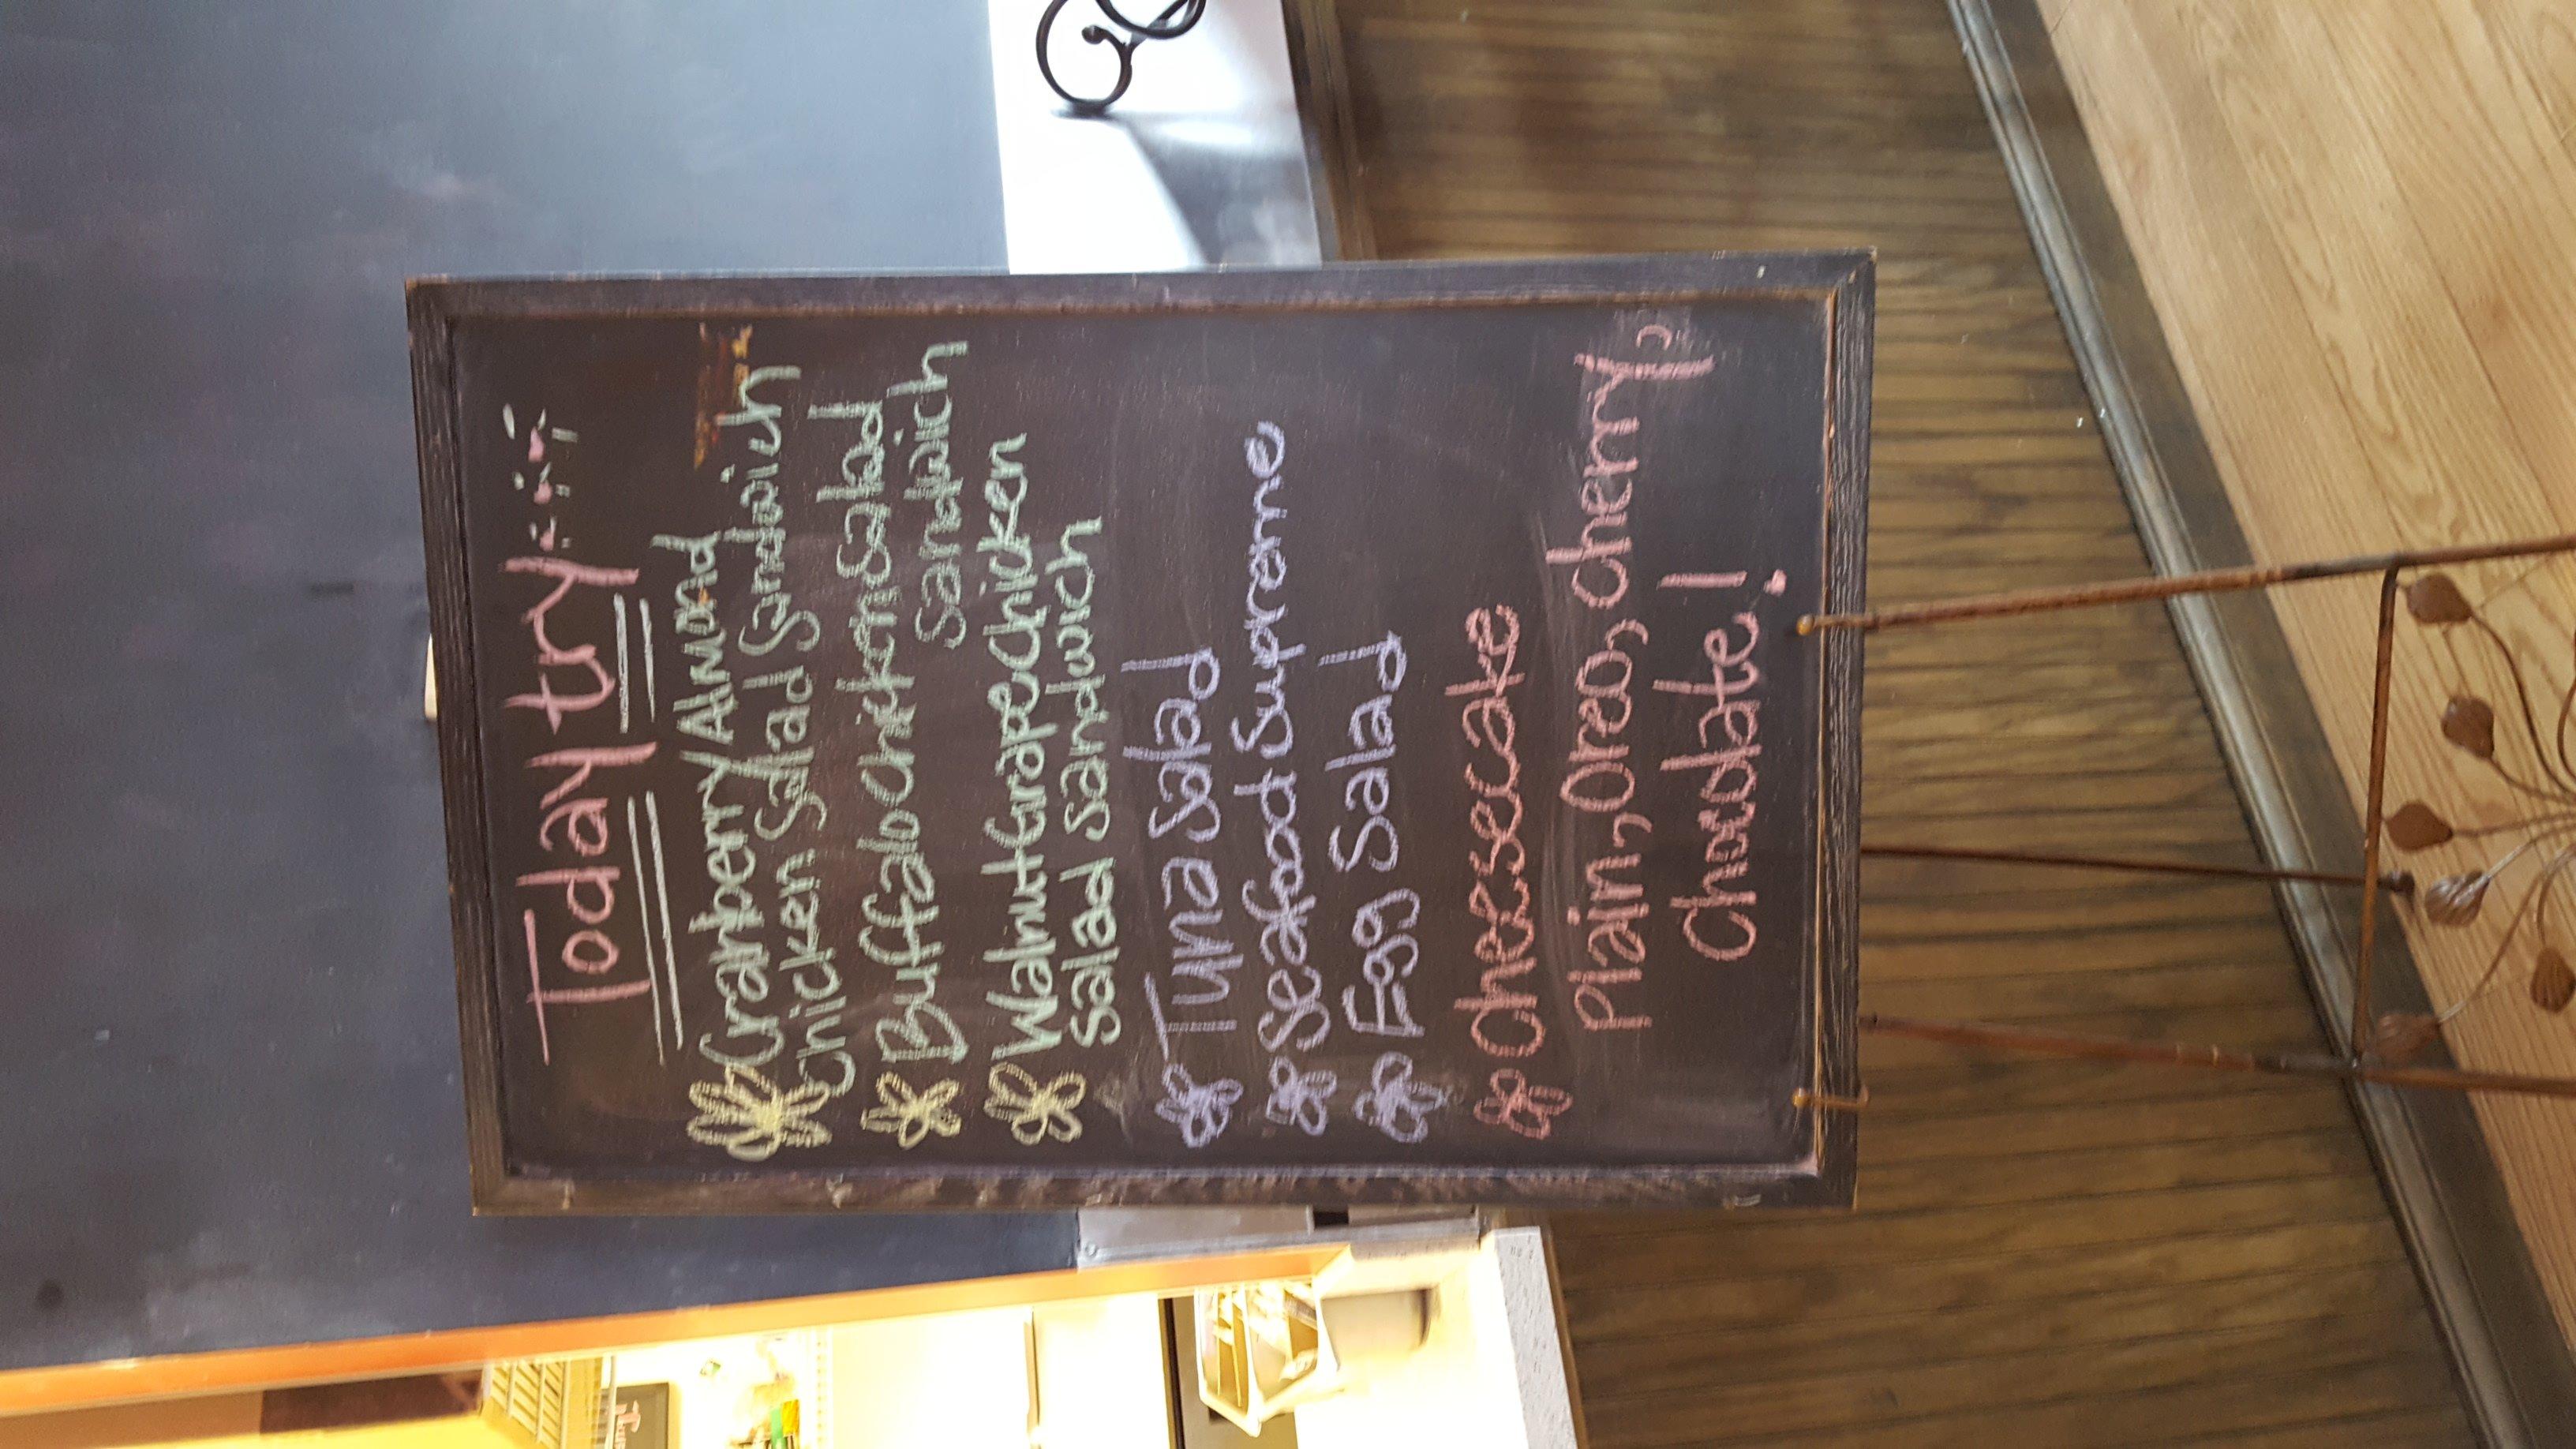 Today try...
Cranberry/Almond
Chicken Salad Sandwich
Buffalo Chicken Salad
Sandwich
Walnut Grape Chicken
Salad Sandwich
Tuna Salad
Seafood Supreme
Egg Salad
Cheesecake
Plain, Oreo, Cherry,
Chocolate!